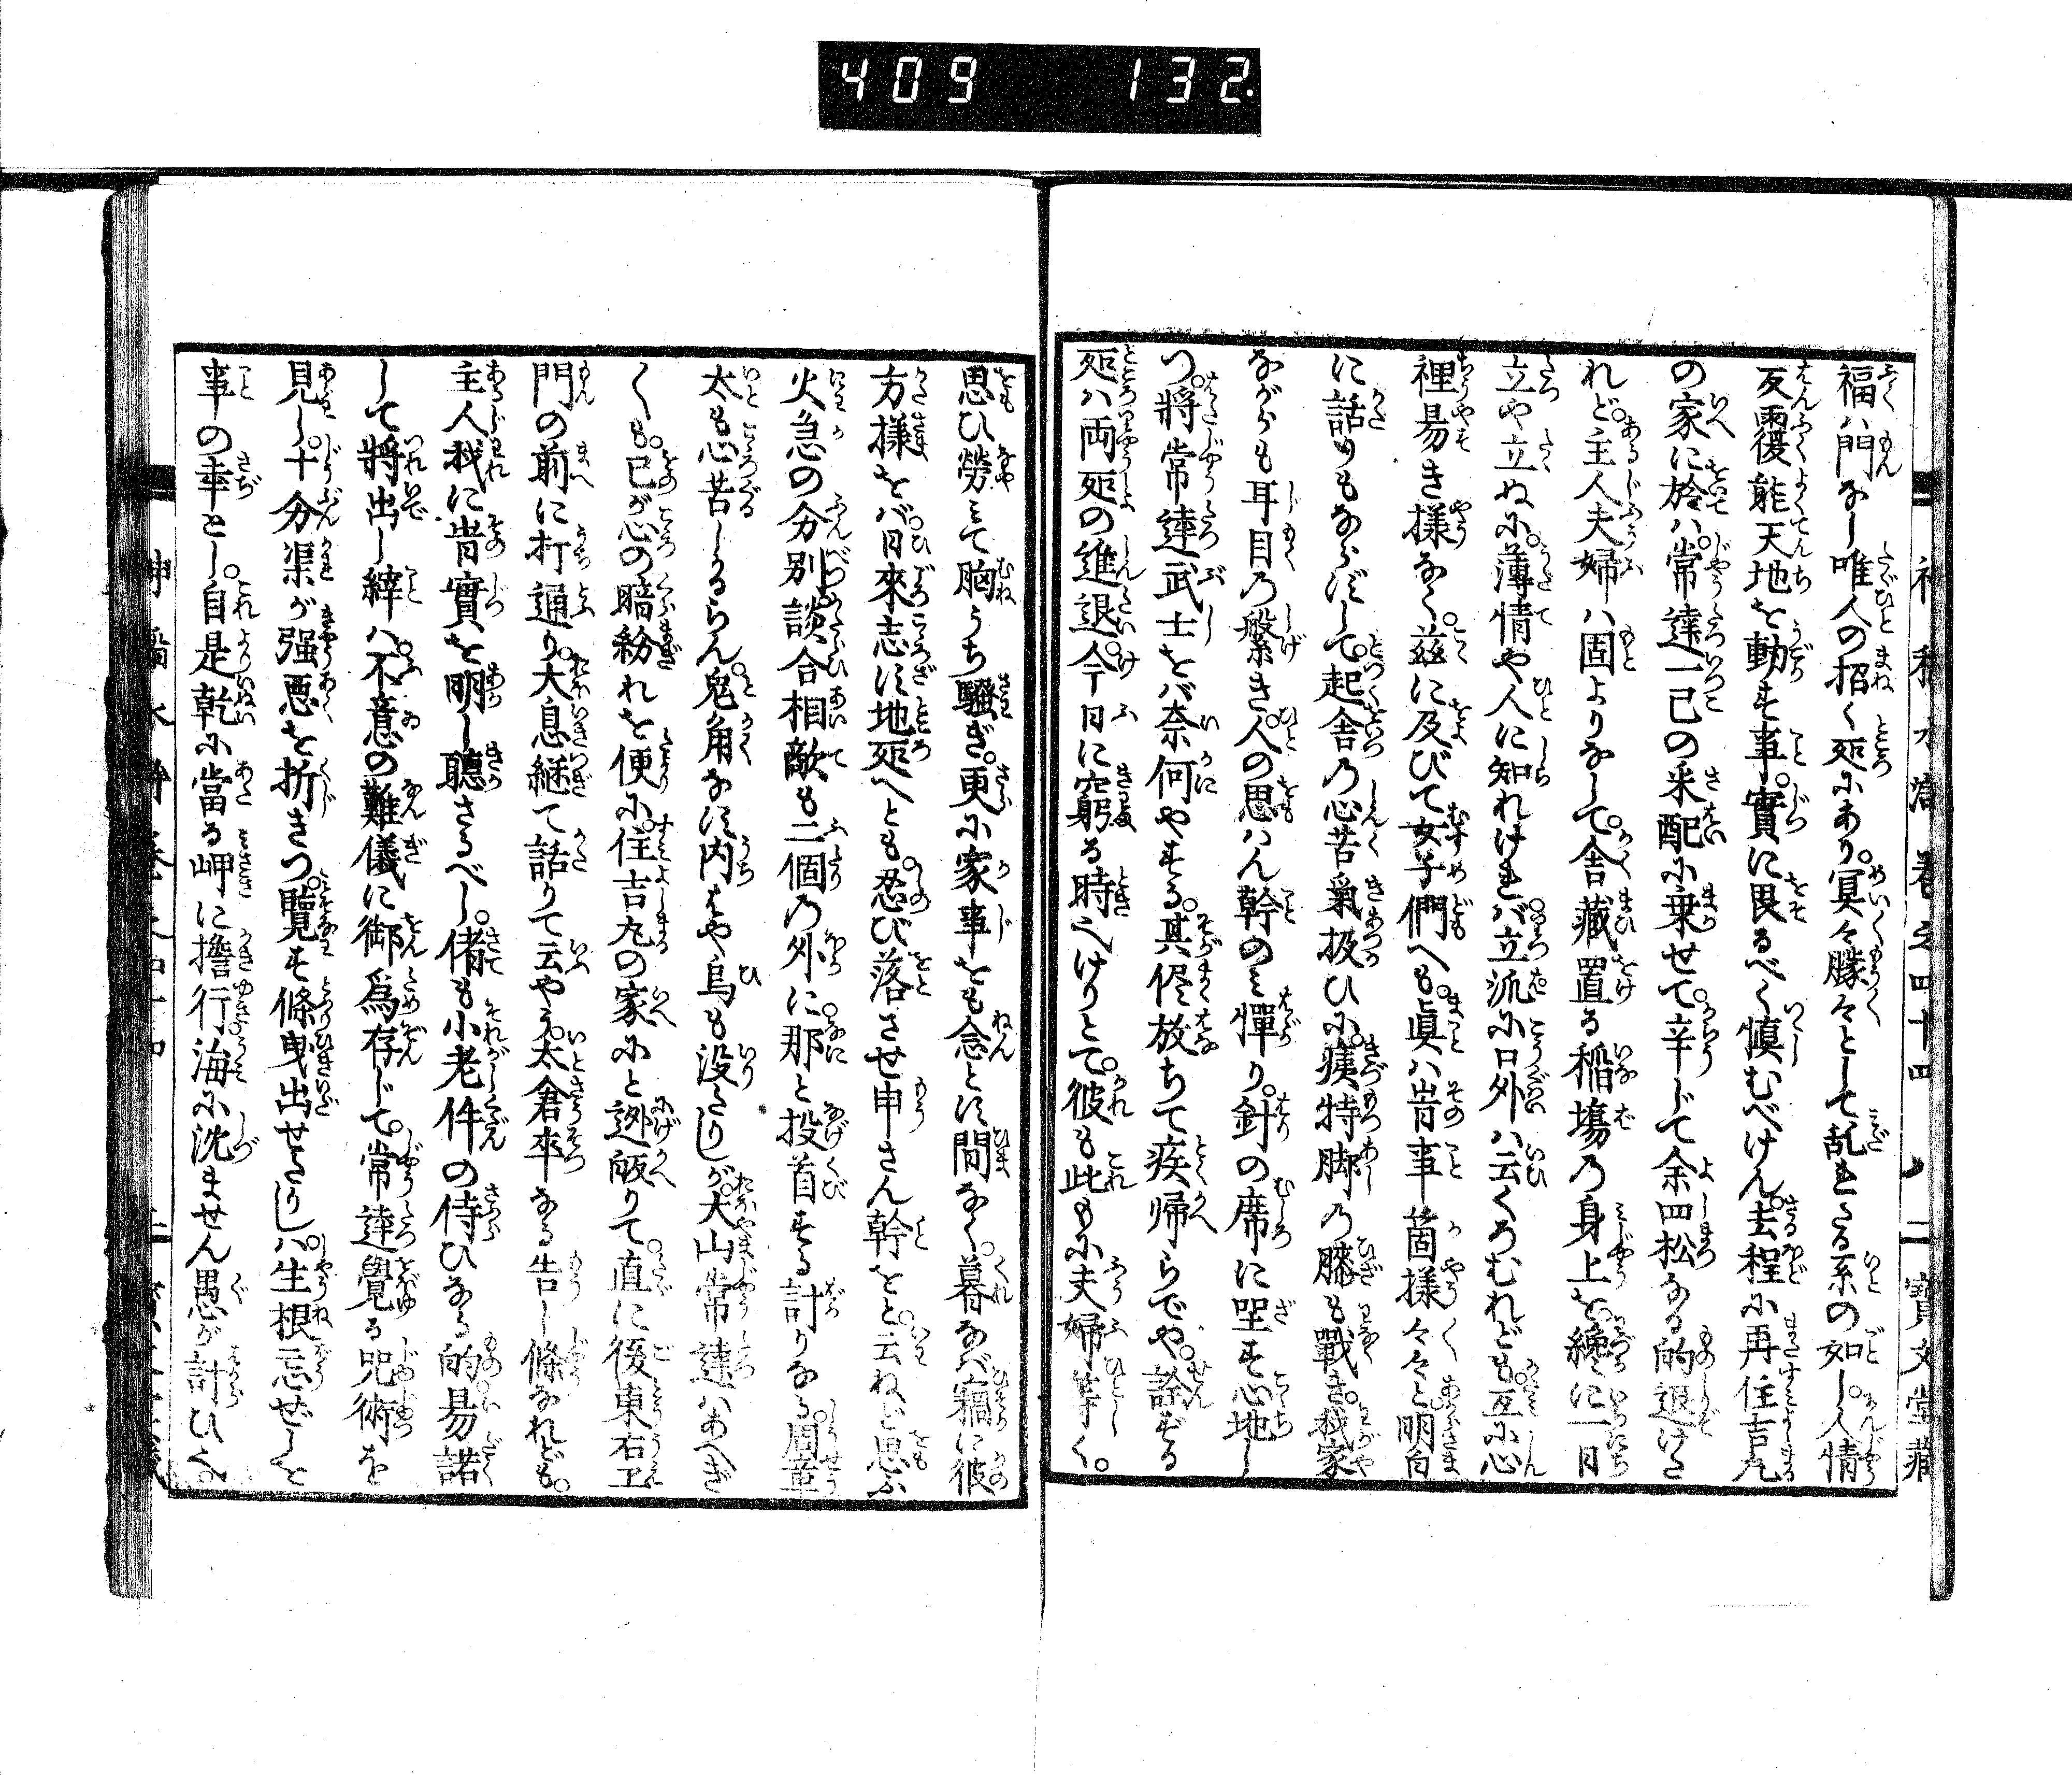 409 132.
福ハ門なし唯人の招く処にあり。冥々朦々として乱れたる糸の如し。人情
反覆能天地を動す事。實に畏るべく愼むべけん。去程に再住吉丸
の家に於ハ。常達一己の采配に乗せて。辛じて余四松なる的退けた
れど。主人夫婦ハ固よりなして。舎藏置る稲塲の身上を。纔に一日
立や立ぬに。薄情や人に知れけれバ。立派に口外ハ云くろむれども。互に心
裡易き様なく。茲に及びて女子們へも。眞ハ甞事箇様々々と。明白
に話りもならずして。起舎の心苦氣扱ひに。痍持脚の膝も戰き。我家
ながらも耳目の繁き。人の思ハん幹のミ憚り。針の席に坐す心地し
つ。將常達武士をバ奈何やする。其侭放ちて疾帰らでや。詮ずる
処ハ両処の進退。今日に窮る時之けりとて。彼も此もに夫婦等く。
思ひ勞ミて胸うち騒ぎ。更に家事をも念とに間なく。暮なバ竊に彼
方様をバ。日來志す地処へとも。忍び落させ申さん幹をと。云ねど思ふ
火急の分別談合相敵も二個の外に。那と投首する計りなる。周章
太も心苦しかるらん。鬼角なに内はや烏も没たりしが。大山常達ハあへぎ
〳〵も。己が心の暗紛れを便に。住吉丸の家にと迯皈りて。直に後東右卫
門の前に打通り。大息継て話りて云やう。太倉卒なる告し條なれども。
主人我に甞實を明し聽さるべし。偖も小老件の侍ひなる的。易諾
して將出し縡ハ。不意の難儀に御爲存じて。常達覺る咒術を
見し。十分渠が强悪を折きつ。贐す條曳出せたりしハ。生根忘ぜしと
事の幸とし。自是乾に當る岬に擔行。海に沈ません愚が計ひ之。
卷之四十四 二 寶文堂藏